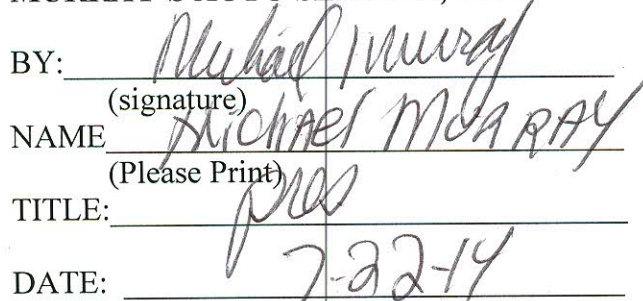 BY: Michael Murray
(signature)
NAME Michael MURRAY
(Please Print)
TITLE: pres
DATE: 7-22-14